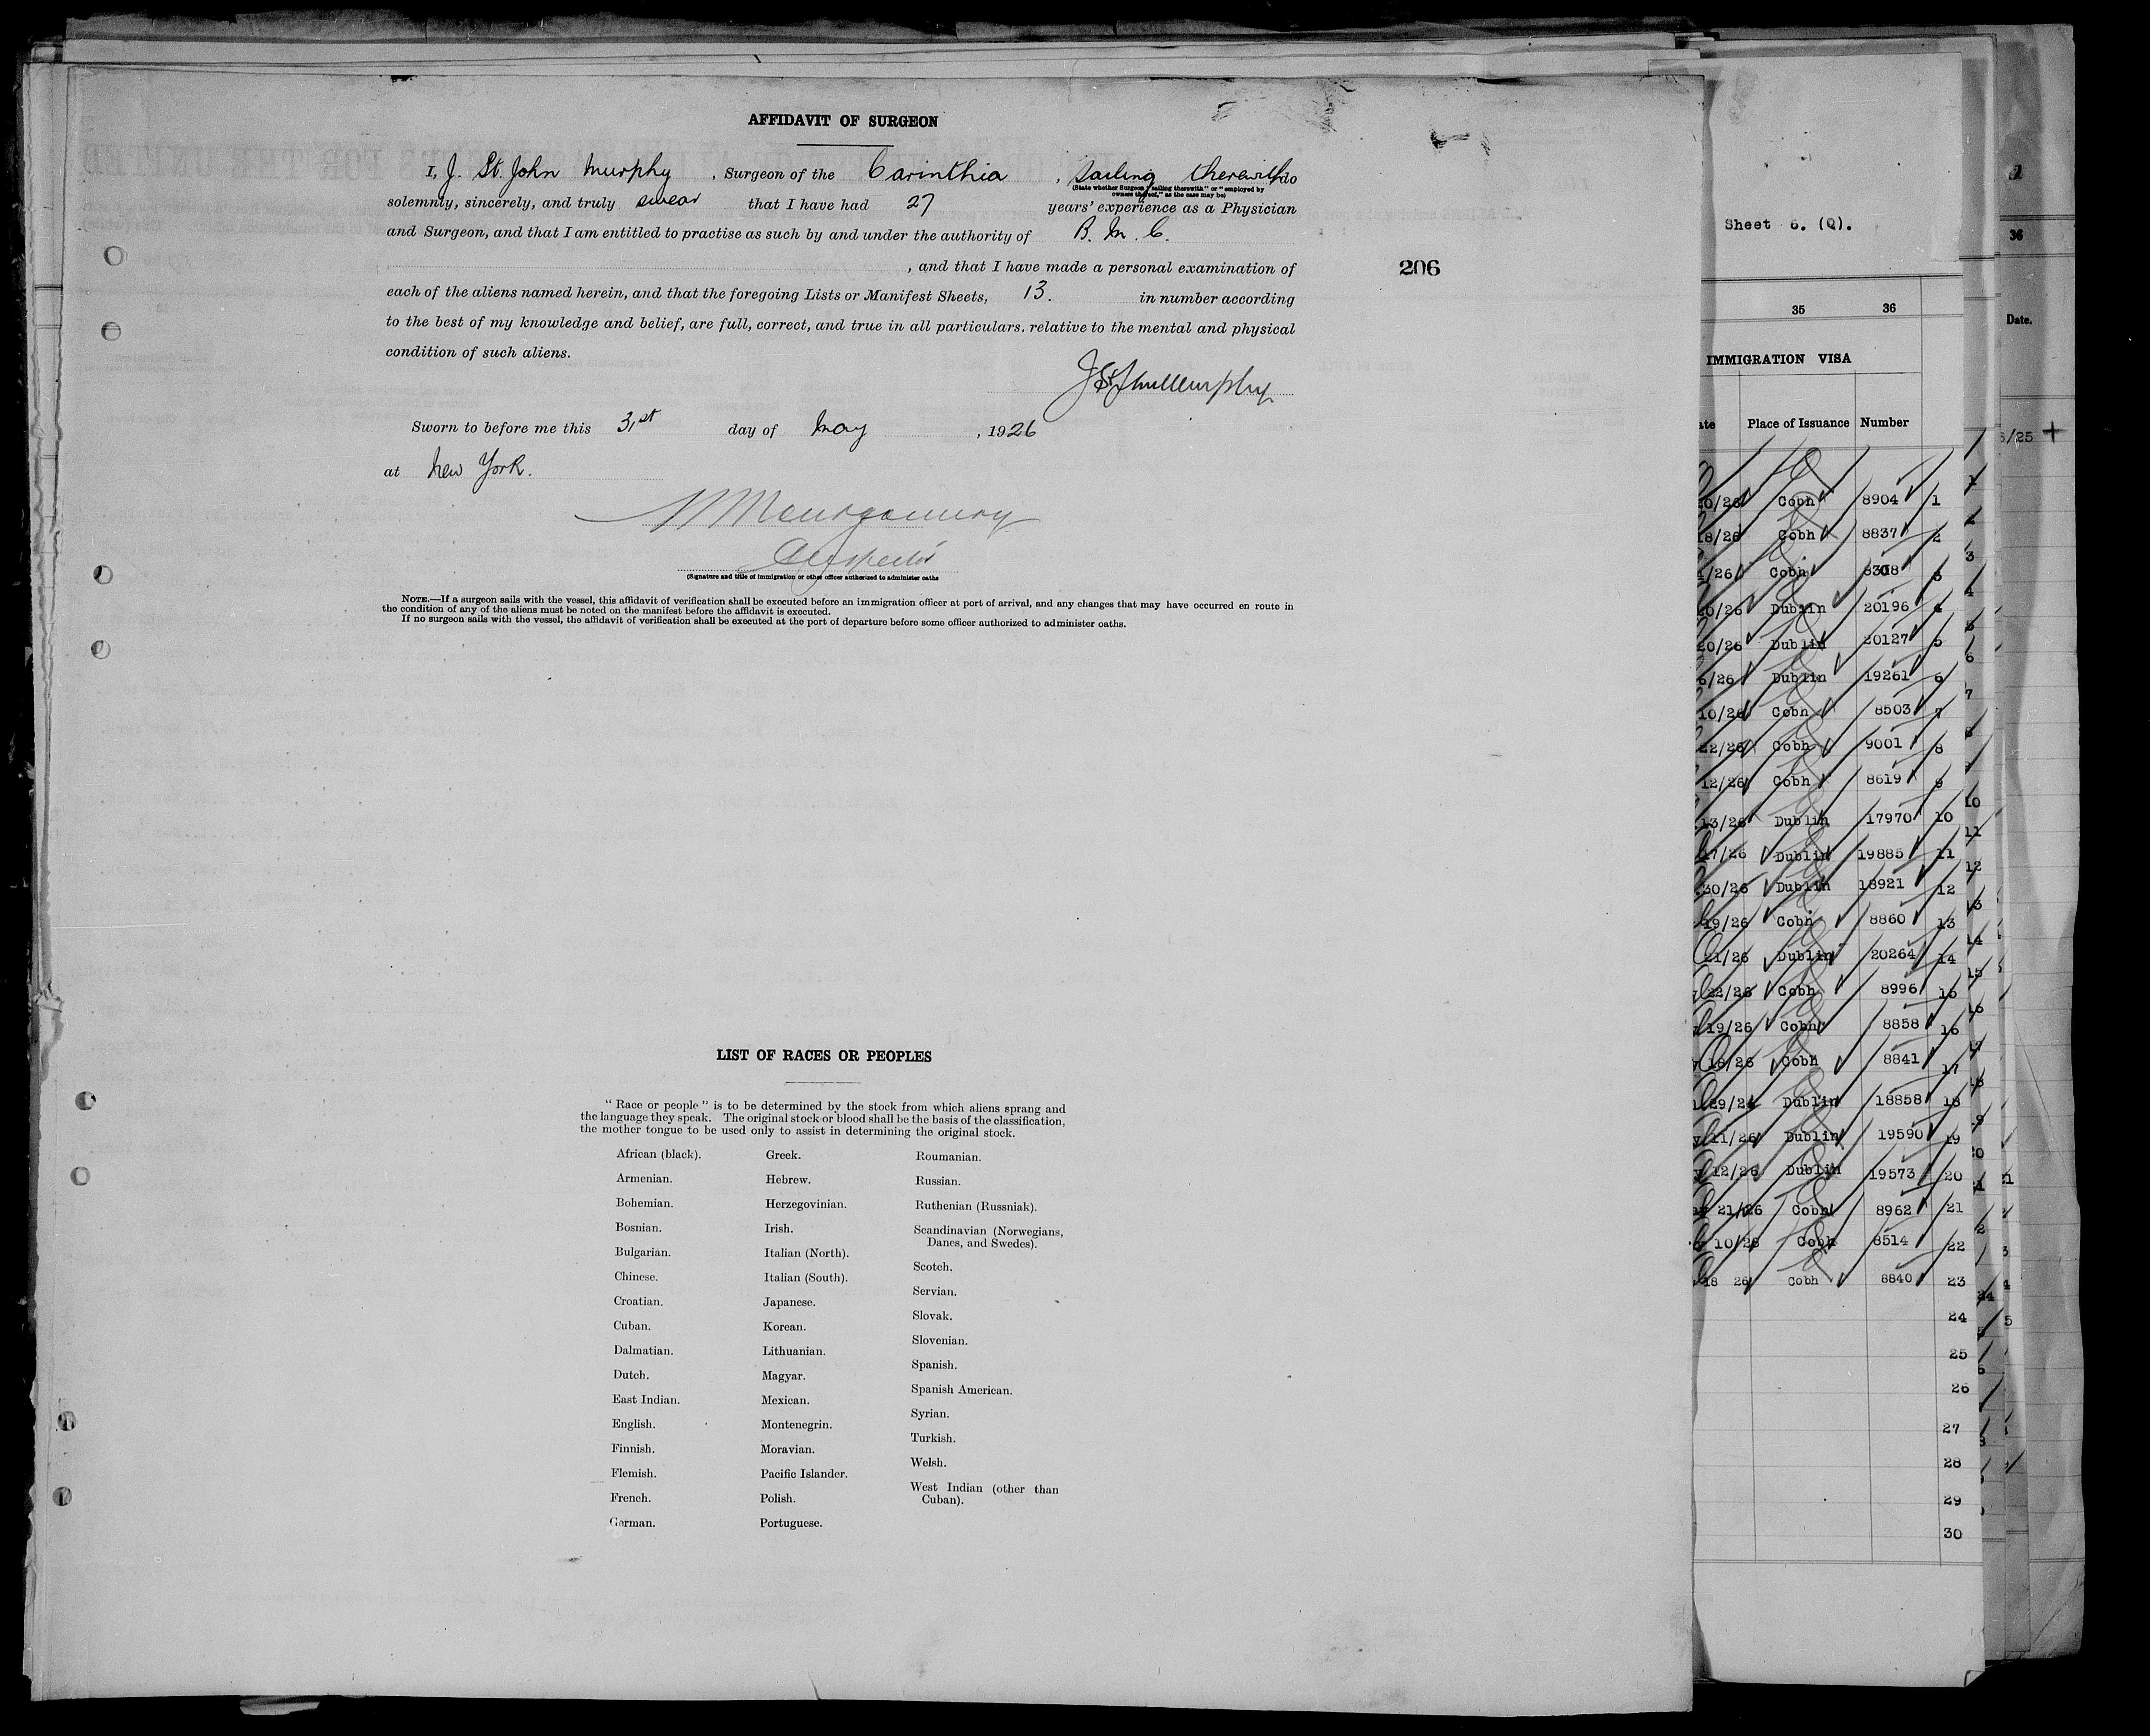 AFFIDAVIT OF SURGEON
I, J. St. John Murphy, Surgeon of the Carinthia, sailing therewith do
(State whether Surgeon "sailing therewith" or "employed by
owners thereof," as the case may be)
solemnly, sincerely, and truly swear that I have had 27 years' experience as a Physician
and Surgeon, and that I am entitled to practise as such by and under the authority of B. M. C.
, and that I have made a personal examination of
each of the aliens named herein, and that the foregoing Lists or Manifest Sheets, 13. in number according
to the best of my knowledge and belief, are full, correct, and true in all particulars, relative to the mental and physical
condition of such aliens.
J St John Murphy
Sworn to before me this 31st day of May, 1926
at New York.
Montgomery
Inspector
(Signature and title of immigration or other officer authorized to administer oaths
NOTE.—If a surgeon sails with the vessel, this affidavit of verification shall be executed before an immigration officer at port of arrival, and any changes that may have occurred en route in
the condition of any of the aliens must be noted on the manifest before the affidavit is executed.
If no surgeon sails with the vessel, the affidavit of verification shall be executed at the port of departure before some officer authorized to administer oaths.
206
LIST OF RACES OR PEOPLES
"Race or people" is to be determined by the stock from which aliens sprang and
the language they speak. The original stock or blood shall be the basis of the classification,
the mother tongue to be used only to assist in determining the original stock.
African (black).
Armenian.
Bohemian.
Bosnian.
Bulgarian.
Chinese.
Croatian.
Cuban.
Dalmatian.
Dutch.
East Indian.
English.
Finnish.
Flemish.
French.
German.
Greek.
Hebrew.
Herzegovinian.
Irish.
Italian (North).
Italian (South).
Japanese.
Korean.
Lithuanian.
Magyar.
Mexican.
Montenegrin.
Moravian.
Pacific Islander.
Polish.
Portuguese.
Roumanian.
Russian.
Ruthenian (Russniak).
Scandinavian (Norwegians,
Danes, and Swedes).
Scotch.
Servian.
Slovak.
Slovenian.
Spanish.
Spanish American.
Syrian.
Turkish.
Welsh.
West Indian (other than
Cuban).
Sheet 6. (Q).
35 36
IMMIGRATION VISA
Place of Issuance Number
Cobh 8904 1
Cobh 8837 2
Cobh 8308 3
Dublin 20196 4
Dublin 20127 5
Dublin 19261 6
10/26 Cobh 8503 7
22/26 Cobh 9001 8
12/26 Cobh 8619 9
13/26 Dublin 17970 10
17/26 Dublin 19885 11
30/26 Dublin 18921 12
19/26 Cobh 8860 13
21/26 Dublin 20264 14
22/26 Cobh 8996 15
19/26 Cobh 8858 16
18/26 Cobh 8841 17
29/26 Dublin 18858 18
11/26 Dublin 19590 19
12/26 Dublin 19573 20
21/26 Cobh 8962 21
10/26 Cobh 8514 22
18 26 Cobh 8840 23
24
25
26
27
28
29
30
36
Date.
5/25